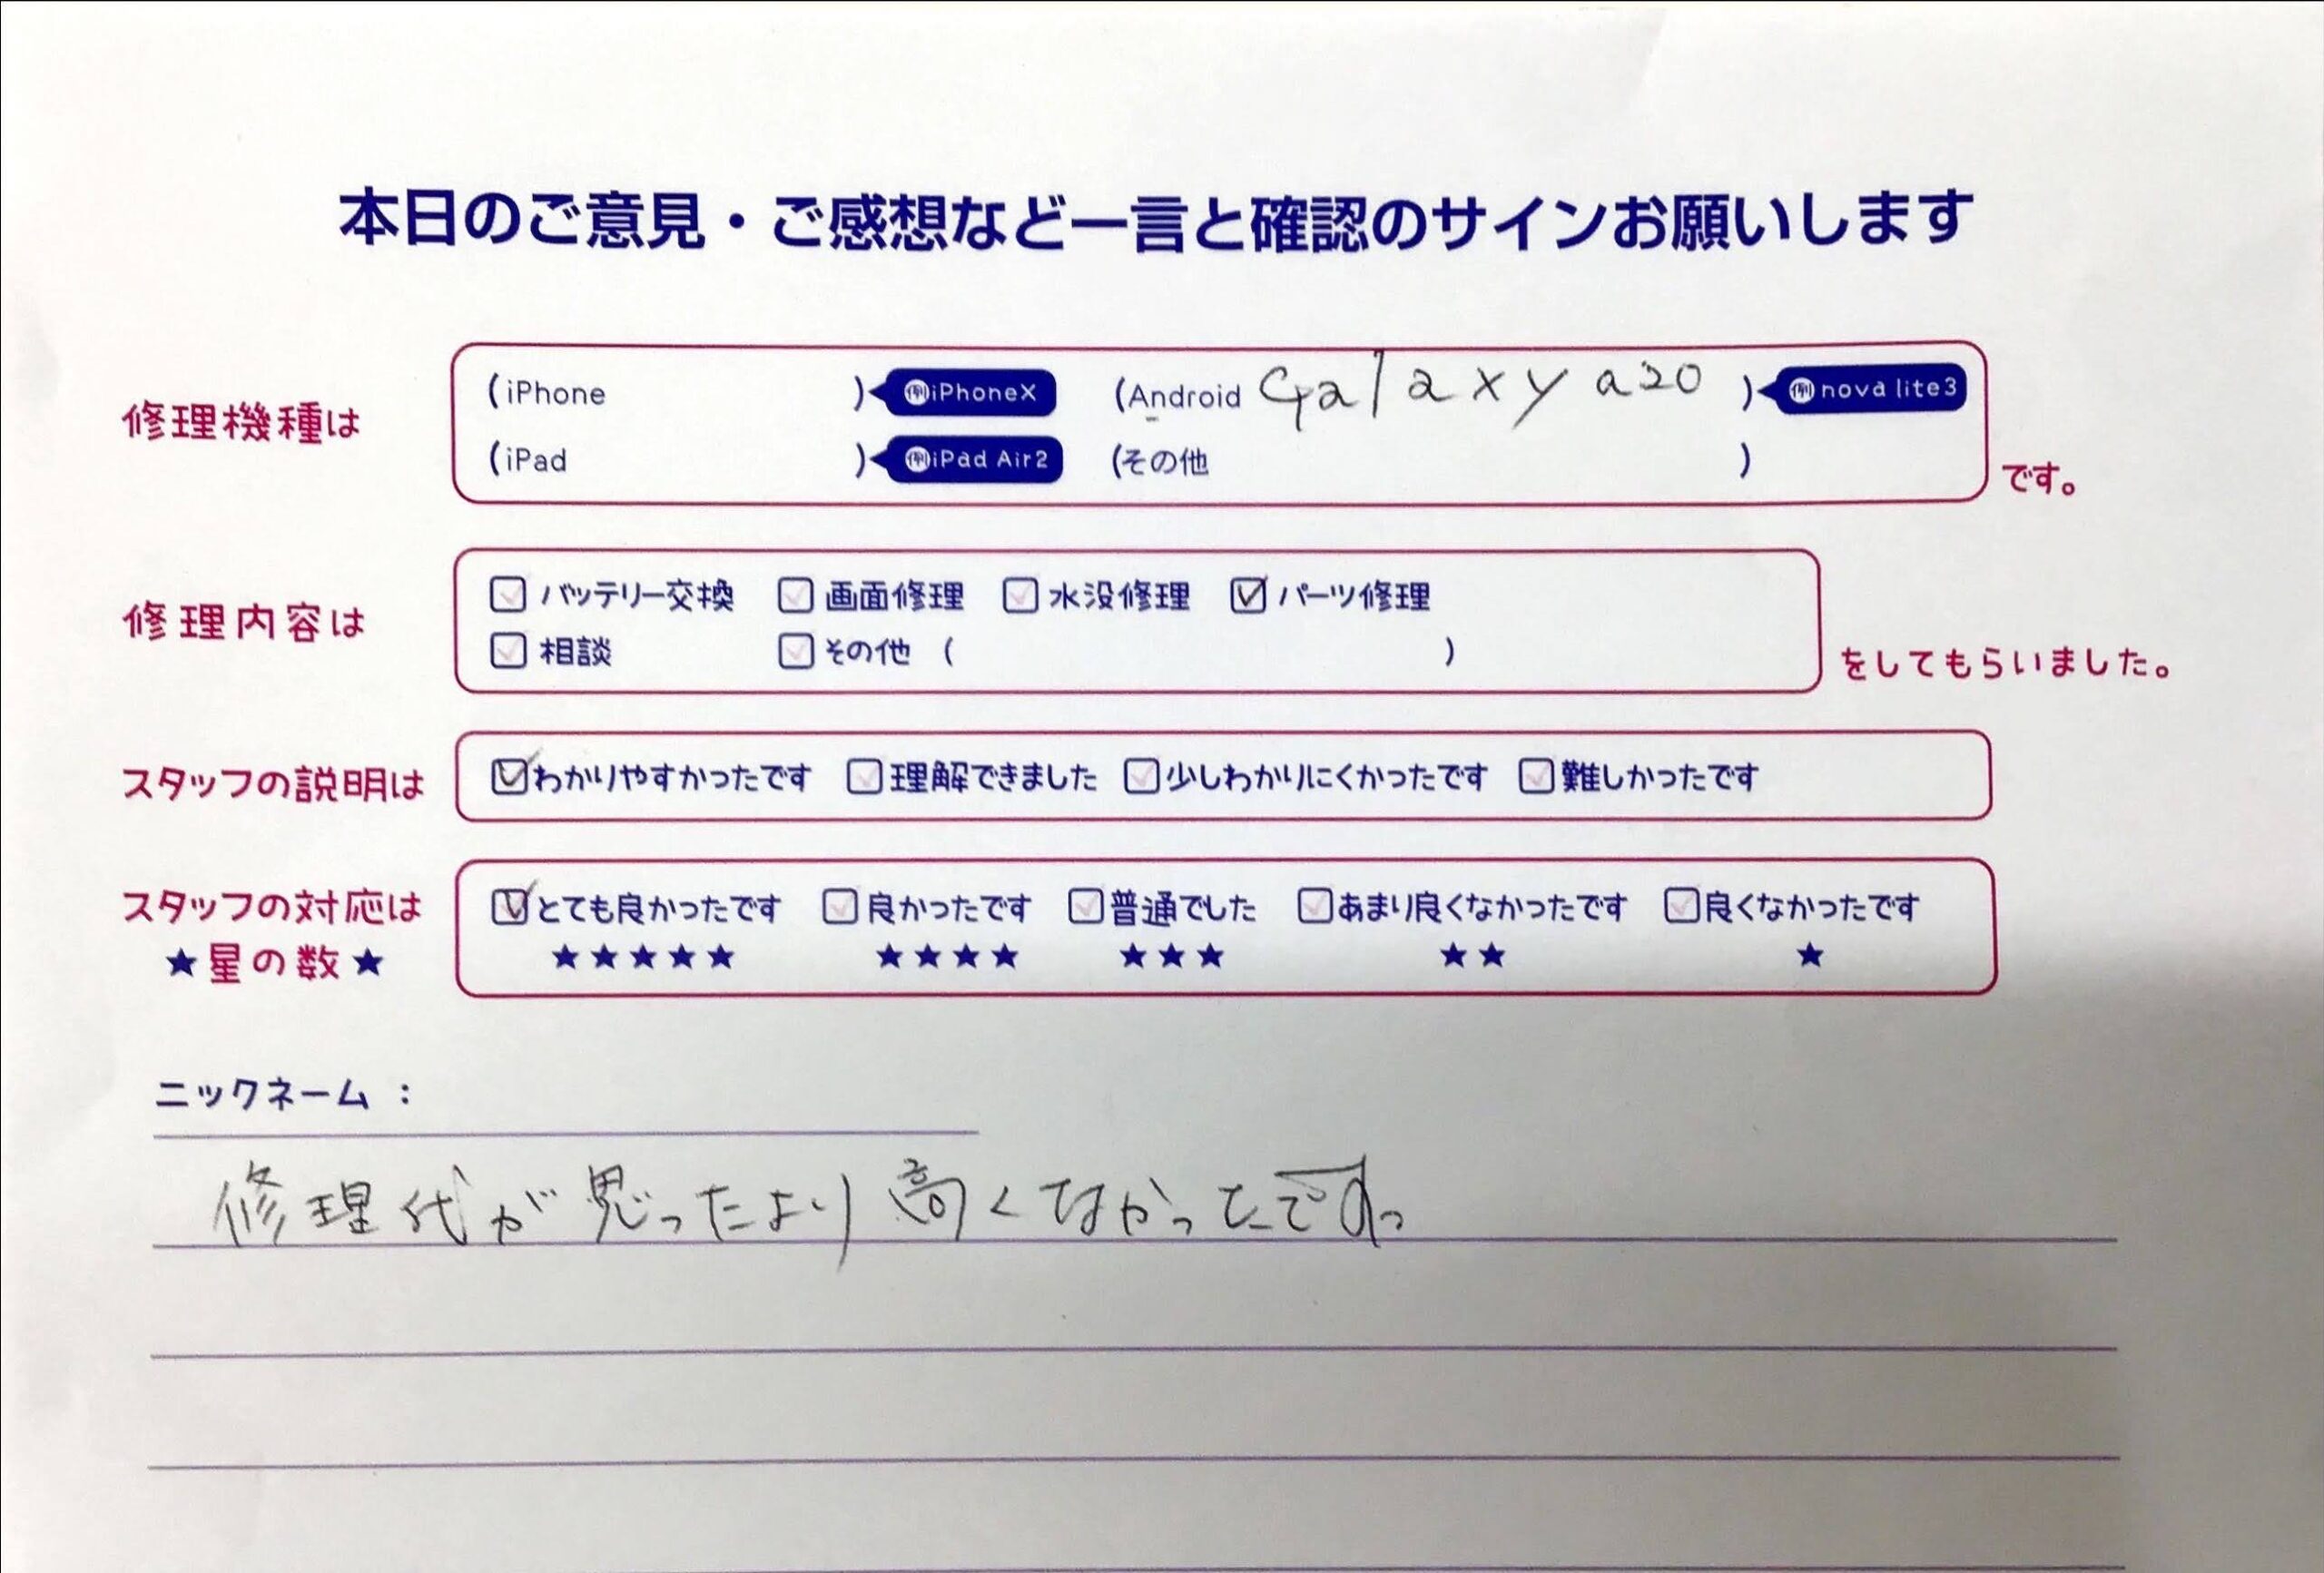 本日のご意見・ご感想など一言と確認のサインお願いします
修理機種は
(iPhone ) 例iPhoneX (Android Galaxy a20 ) 例nova lite3
(iPad ) 例iPad Air2 (その他 ) です。
修理内容は
バッテリー交換 画面修理 水没修理 パーツ修理
相談 その他 ( ) をしてもらいました。
スタッフの説明は わかりやすかったです 理解できました 少しわかりにくかったです 難しかったです
スタッフの対応は とても良かったです 良かったです 普通でした あまり良くなかったです 良くなかったです
★星の数★ ★★★★★ ★★★★ ★★★ ★★ ★
ニックネーム :
修理代が思ったより高くなかったです。